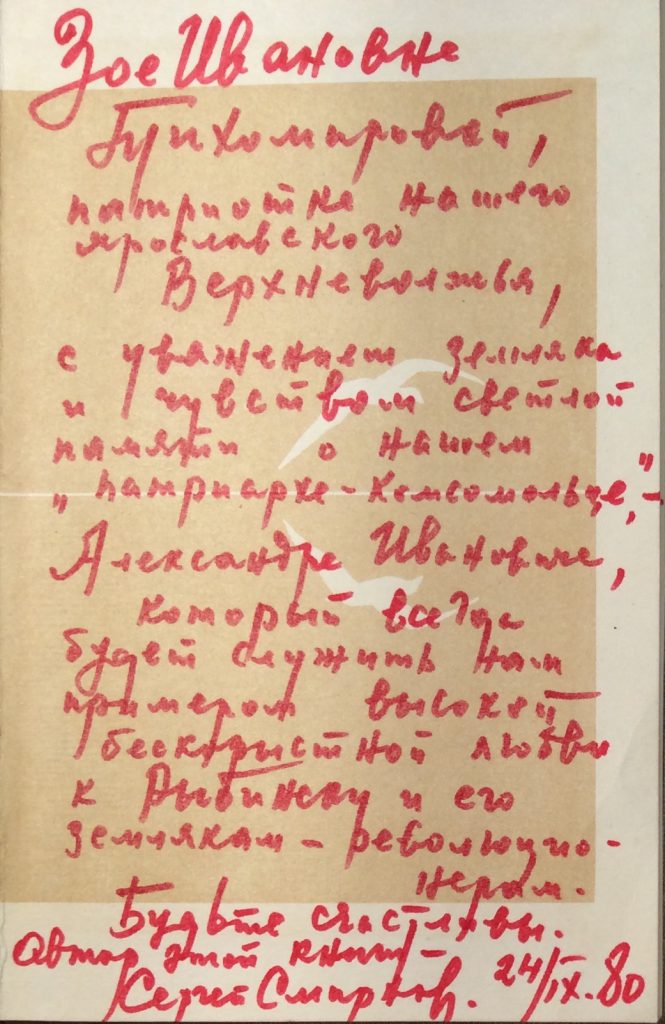 Зое Ивановне
Тихомировой,
патриотке нашего
ярославского
Верхневолжья,
с уважением земляка
и чувством светлой
памяти о нашем
„патриархе-комсомольце",-
Александре Ивановиче,
который всегда
будет служить нам
примером высокой
бескорыстной любви
к Рыбинску и его
землякам – революцио-
нерам.
Будьте счастливы.
Автор этой книги –
Сергей Смирнов. 24/IX.80